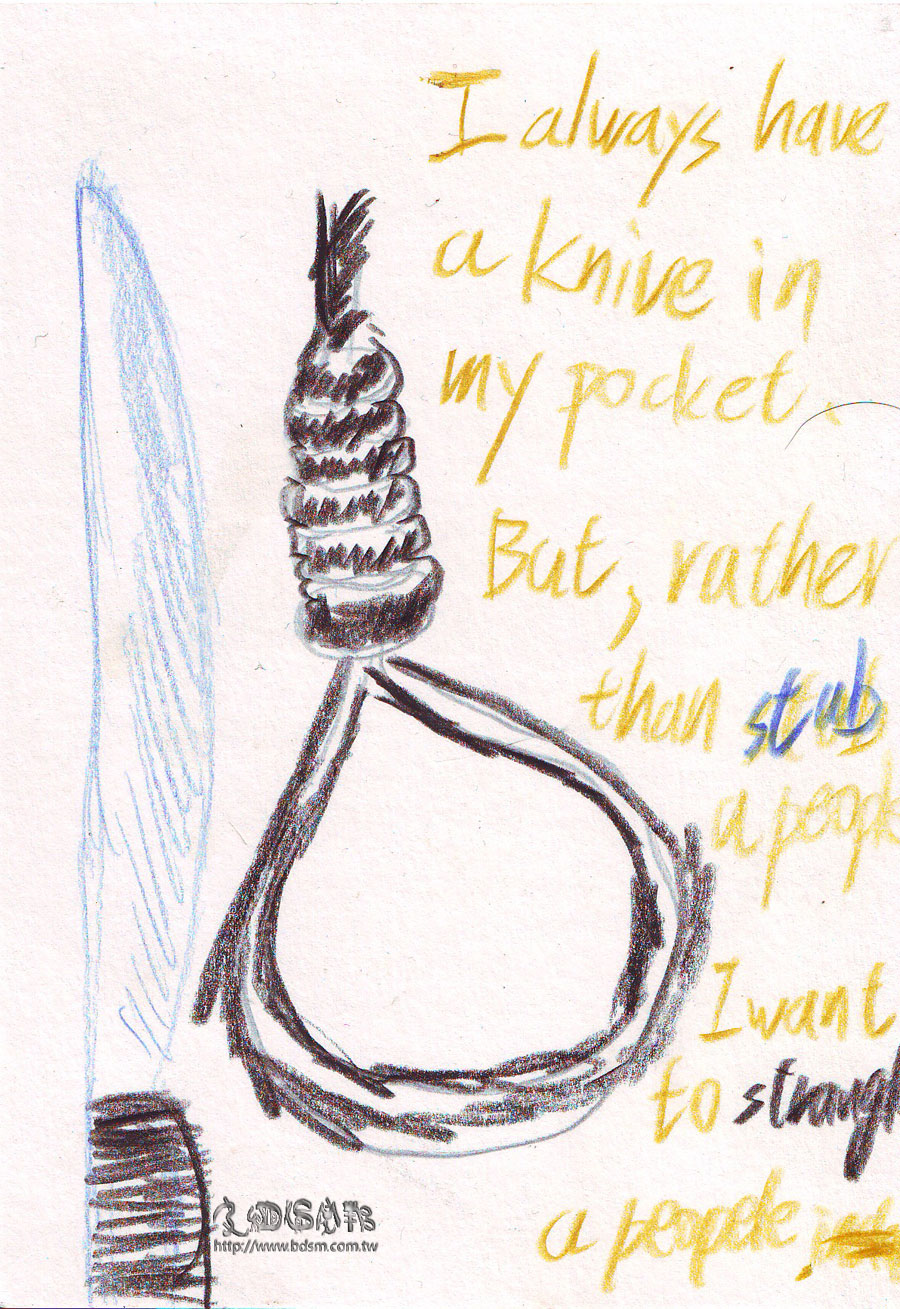 I always have
a knive in
my pocket.
But, rather
than stab
a people
I want
to strangl
a people
http://www.bdsm.com.tw